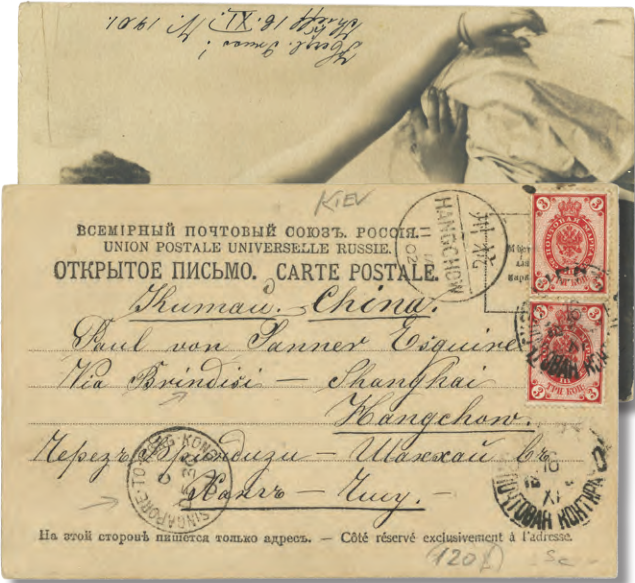 16. XI. 1901.
KIEV
ВСЕМІРНЫЙ ПОЧТОВЫЙ СОЮЗЪ. РОССІЯ.
UNION POSTALE UNIVERSELLE RUSSIE.
ОТКРЫТОЕ ПИСЬМО. CARTE POSTALE.
HANGCHOW
杭州
3 3
ПОЧТОВАЯ МАРКА
3 3
ТРИ КОП.
Китай. China.
Paul von Tanner Esquire
Via Brindisi — Shanghai
Hangchow.
Черезъ Бриндизи — Шанхай въ
Хангъ — Чжу. —
SINGAPORE-TO-HONG-KONG
ПОЧТОВАЯ КОНТОРА
На этой сторонѣ пишется только адресъ. — Côté réservé exclusivement à l'adresse.
(120